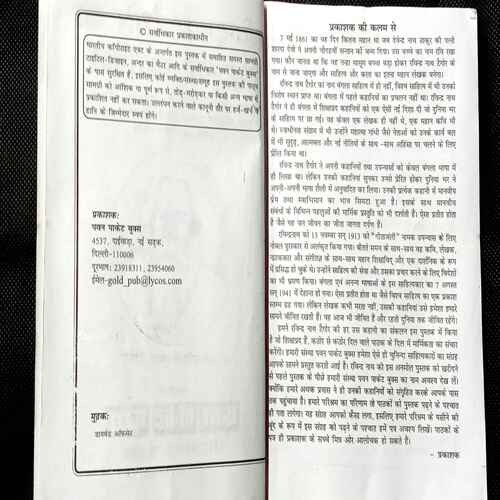 © सर्वाधिकार प्रकाशकाधीन
भारतीय कॉपीराइट एक्ट के अन्तर्गत इस पुस्तक में समाहित समस्त सामग्री
टाइटिल-डिजाइन, अन्दर का मैटर आदि के सर्वाधिकार "पवन पाकेट बुक्स"
के पास सुरक्षित हैं, इसलिए कोई व्यक्ति/संस्था/समूह इस पुस्तक की
सामग्री को आंशिक या पूर्ण रूप से, तोड़-मरोड़कर या किसी अन्य भाषा में
प्रकाशित नहीं कर सकता। उल्लंघन करने वाले कानूनी तौर पर हर्जे-खर्चे
हानि के जिम्मेदार स्वयं होंगे।
प्रकाशक:
पवन पाकेट बुक्स
4537, दाईवाड़ा, नई सड़क,
दिल्ली-110006
दूरभाष: 23918311, 23954060
ईमेल-gold_pub@lycos.com
मुद्रक:
डायमंड ऑफसेट
प्रकाशक की कलम से
7 मई 1861 का वह दिन कितना महान था जब देवेन्द्र नाथ ठाकुर की पत्नी
शारदा देवी ने अपनी चौदहवीं सन्तान को जन्म दिया। उस बच्चे का नाम रवि रखा
गया। कौन जानता था कि वह नन्हा मासूम बच्चा बड़ा होकर रविन्द्र नाथ टैगोर के
नाम से जाना जाएगा और साहित्य और कला का इतना महान लेखक बनेगा।
रविन्द्र नाथ टैगोर का नाम बंगला साहित्य में ही नहीं, विश्व साहित्य में भी उनका
विशेष स्थान प्राप्त था। बंगला में पहले कहानियों का प्रचलन नहीं था। रविन्द्र नाथ
टैगोर ने ही बंगला में शिक्षाप्रद कहानियों को एक ऐसी नई दिशा दी जो दुनिया भर
के साहित्य पर छा गई। वह केवल एक लेखक ही नहीं थे, एक महान कवि भी
थे। स्वाधीनता संग्राम में भी उन्होंने महात्मा गांधी जैसे नेताओं को उनके कार्य बल
में भी सुदृढ़, आत्मबल और नई नीतियों के साथ-साथ अहिंसा पर चलने के लिए
प्रेरित किया था।
रविन्द्र नाथ टैगोर ने अपनी कहानियों तथा उपन्यासों को केवल बंगला भाषा में
ही लिखा था। लेकिन उनकी कहानियां सुनकर उनसे प्रेरित होकर दुनिया भर ने
अपनी-अपनी भाषा शैली में अनुवादित कर लिया। उनकी प्रत्येक कहानी में मानवीय
प्रेम तथा स्वाभिमान का भाव सिमटा हुआ है। इसके साथ मानवीय
संबंधों के विभिन्न पहलुओं की मार्मिक प्रस्तुति को भी दर्शाती है। ऐसा प्रतीत होता
है जैसे यह जन जीवन का जीता जागता दर्पण है।
रविन्द्रनाथ को 13 नवम्बर सन् 1913 को "गीतांजली" नामक उपन्यास के लिए
नोबल पुरस्कार से अलंकृत किया गया। बीतते समय के साथ-साथ वह कवि, लेखक,
नाटककार और संगीतज्ञ के साथ-साथ महान शिक्षाविद् और एक दार्शनिक के रूप
में प्रसिद्ध हो चुके थे। उन्होंने साहित्य की सेवा और उसका प्रचार करने के लिए विदेशों
का भी भ्रमण किया। बंगला एवं अनन्य भाषाओं के इस साहित्यकार का 7 अगस्त
सन् 1941 में देहान्त हो गया। ऐसा प्रतीत होता था जैसे विश्व साहित्य का एक प्रकाश
स्तम्भ ढह गया। लेकिन लेखक कभी मरता नहीं, उसकी कहानियां उसे हमेशा हमारे
सामने जीवित रखती हैं। वह आज भी जीवित हैं और रहती दुनिया तक जीवित रहेंगे।
हमने रविन्द्र नाथ टैगोर की हर उस कहानी का संकलन इस पुस्तक में किया
है जो शिक्षाप्रद हैं, कठोर से कठोर दिल वाले पाठक के दिल में मार्मिकता का संचार
करेंगी। हमारी संस्था पवन पाकेट बुक्स हमेशा ऐसे ही चुनिन्दा साहित्यकारों का संग्रह
आपके सामने प्रस्तुत करती आई है। रविन्द्र नाथ की इस अनमोल पुस्तक को खरीदने
से पहले पुस्तक के पीछे हमारी संस्था पवन पाकेट बुक्स का नाम अवश्य देख लें।
क्योंकि हमारे अथक प्रयास ने ही उनकी कहानियों को संग्रहित करके आपके पास
तक पहुंचाया है। हमारे परिश्रम का परिणाम तो पाठकों को पुस्तक पढ़ने के पश्चात
ही पता लगेगा। यह संग्रह आपको कैसा लगा, इसलिए हमारे परिश्रम के पसीने की
बूंद के रूप में इस संग्रह को पढ़ने के पश्चात हमें पत्र अवश्य लिखें। पाठकों के
पत्र ही प्रकाशक के सच्चे मित्र और आलोचक हो सकते हैं।
- प्रकाशक